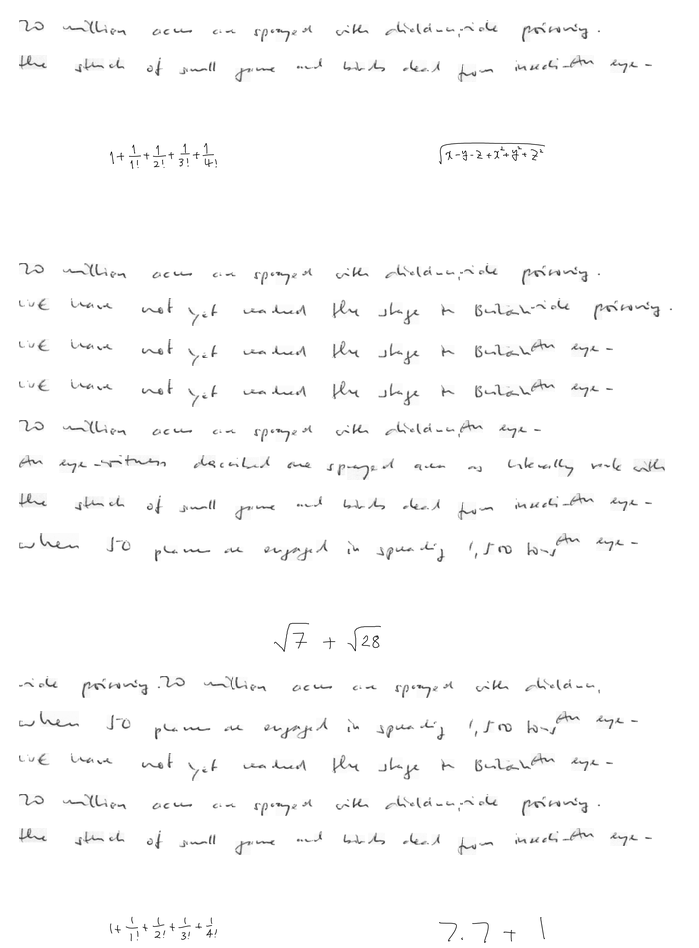 20 million acres are sprayed with dieldrin, -icide poisoning.
the stench of small game and birds dead from insecti- An eye-
1 + 1/1! + 1/2! + 1/3! + 1/4!
√(x - y - z + x² + y² + z²)
20 million acres are sprayed with dieldrin, -icide poisoning.
WE have not yet reached the stage in Britain -icide poisoning.
WE have not yet reached the stage in Britain An eye-
WE have not yet reached the stage in Britain An eye-
20 million acres are sprayed with dieldrin, An eye-
An eye-witness described one sprayed area as literally reek with
the stench of small game and birds dead from insecti- An eye-
when 50 planes are engaged in spreading 1,500 tons An eye-
√7 + √28
-icide poisoning. 20 million acres are sprayed with dieldrin,
when 50 planes are engaged in spreading 1,500 tons An eye-
WE have not yet reached the stage in Britain An eye-
20 million acres are sprayed with dieldrin, -icide poisoning.
the stench of small game and birds dead from insecti- An eye-
1 + 1/1! + 1/2! + 1/3! + 1/4!
7.7 + 1